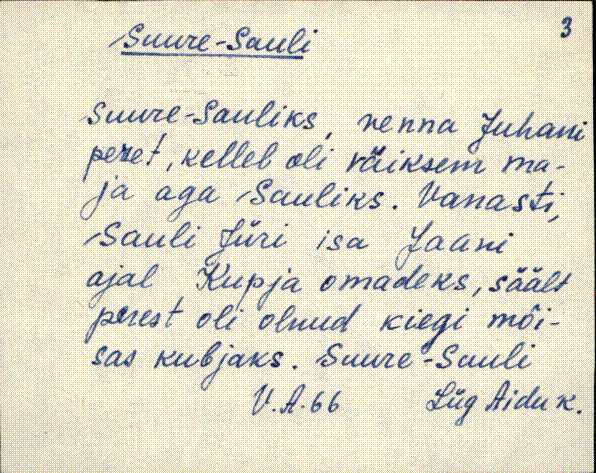 3
Suure-Sauli
Suure-Sauliks, venna Juhani
peret, kelleb oli väiksem ma-
ja aga Sauliks. Vanasti,
Sauli Jüri isa Jaani
ajal Kupja omadeks, säält
perest oli olnud kiegi mõi-
sas kubjaks. Suure-Sauli
V.A.66 Lüg Aidu k.